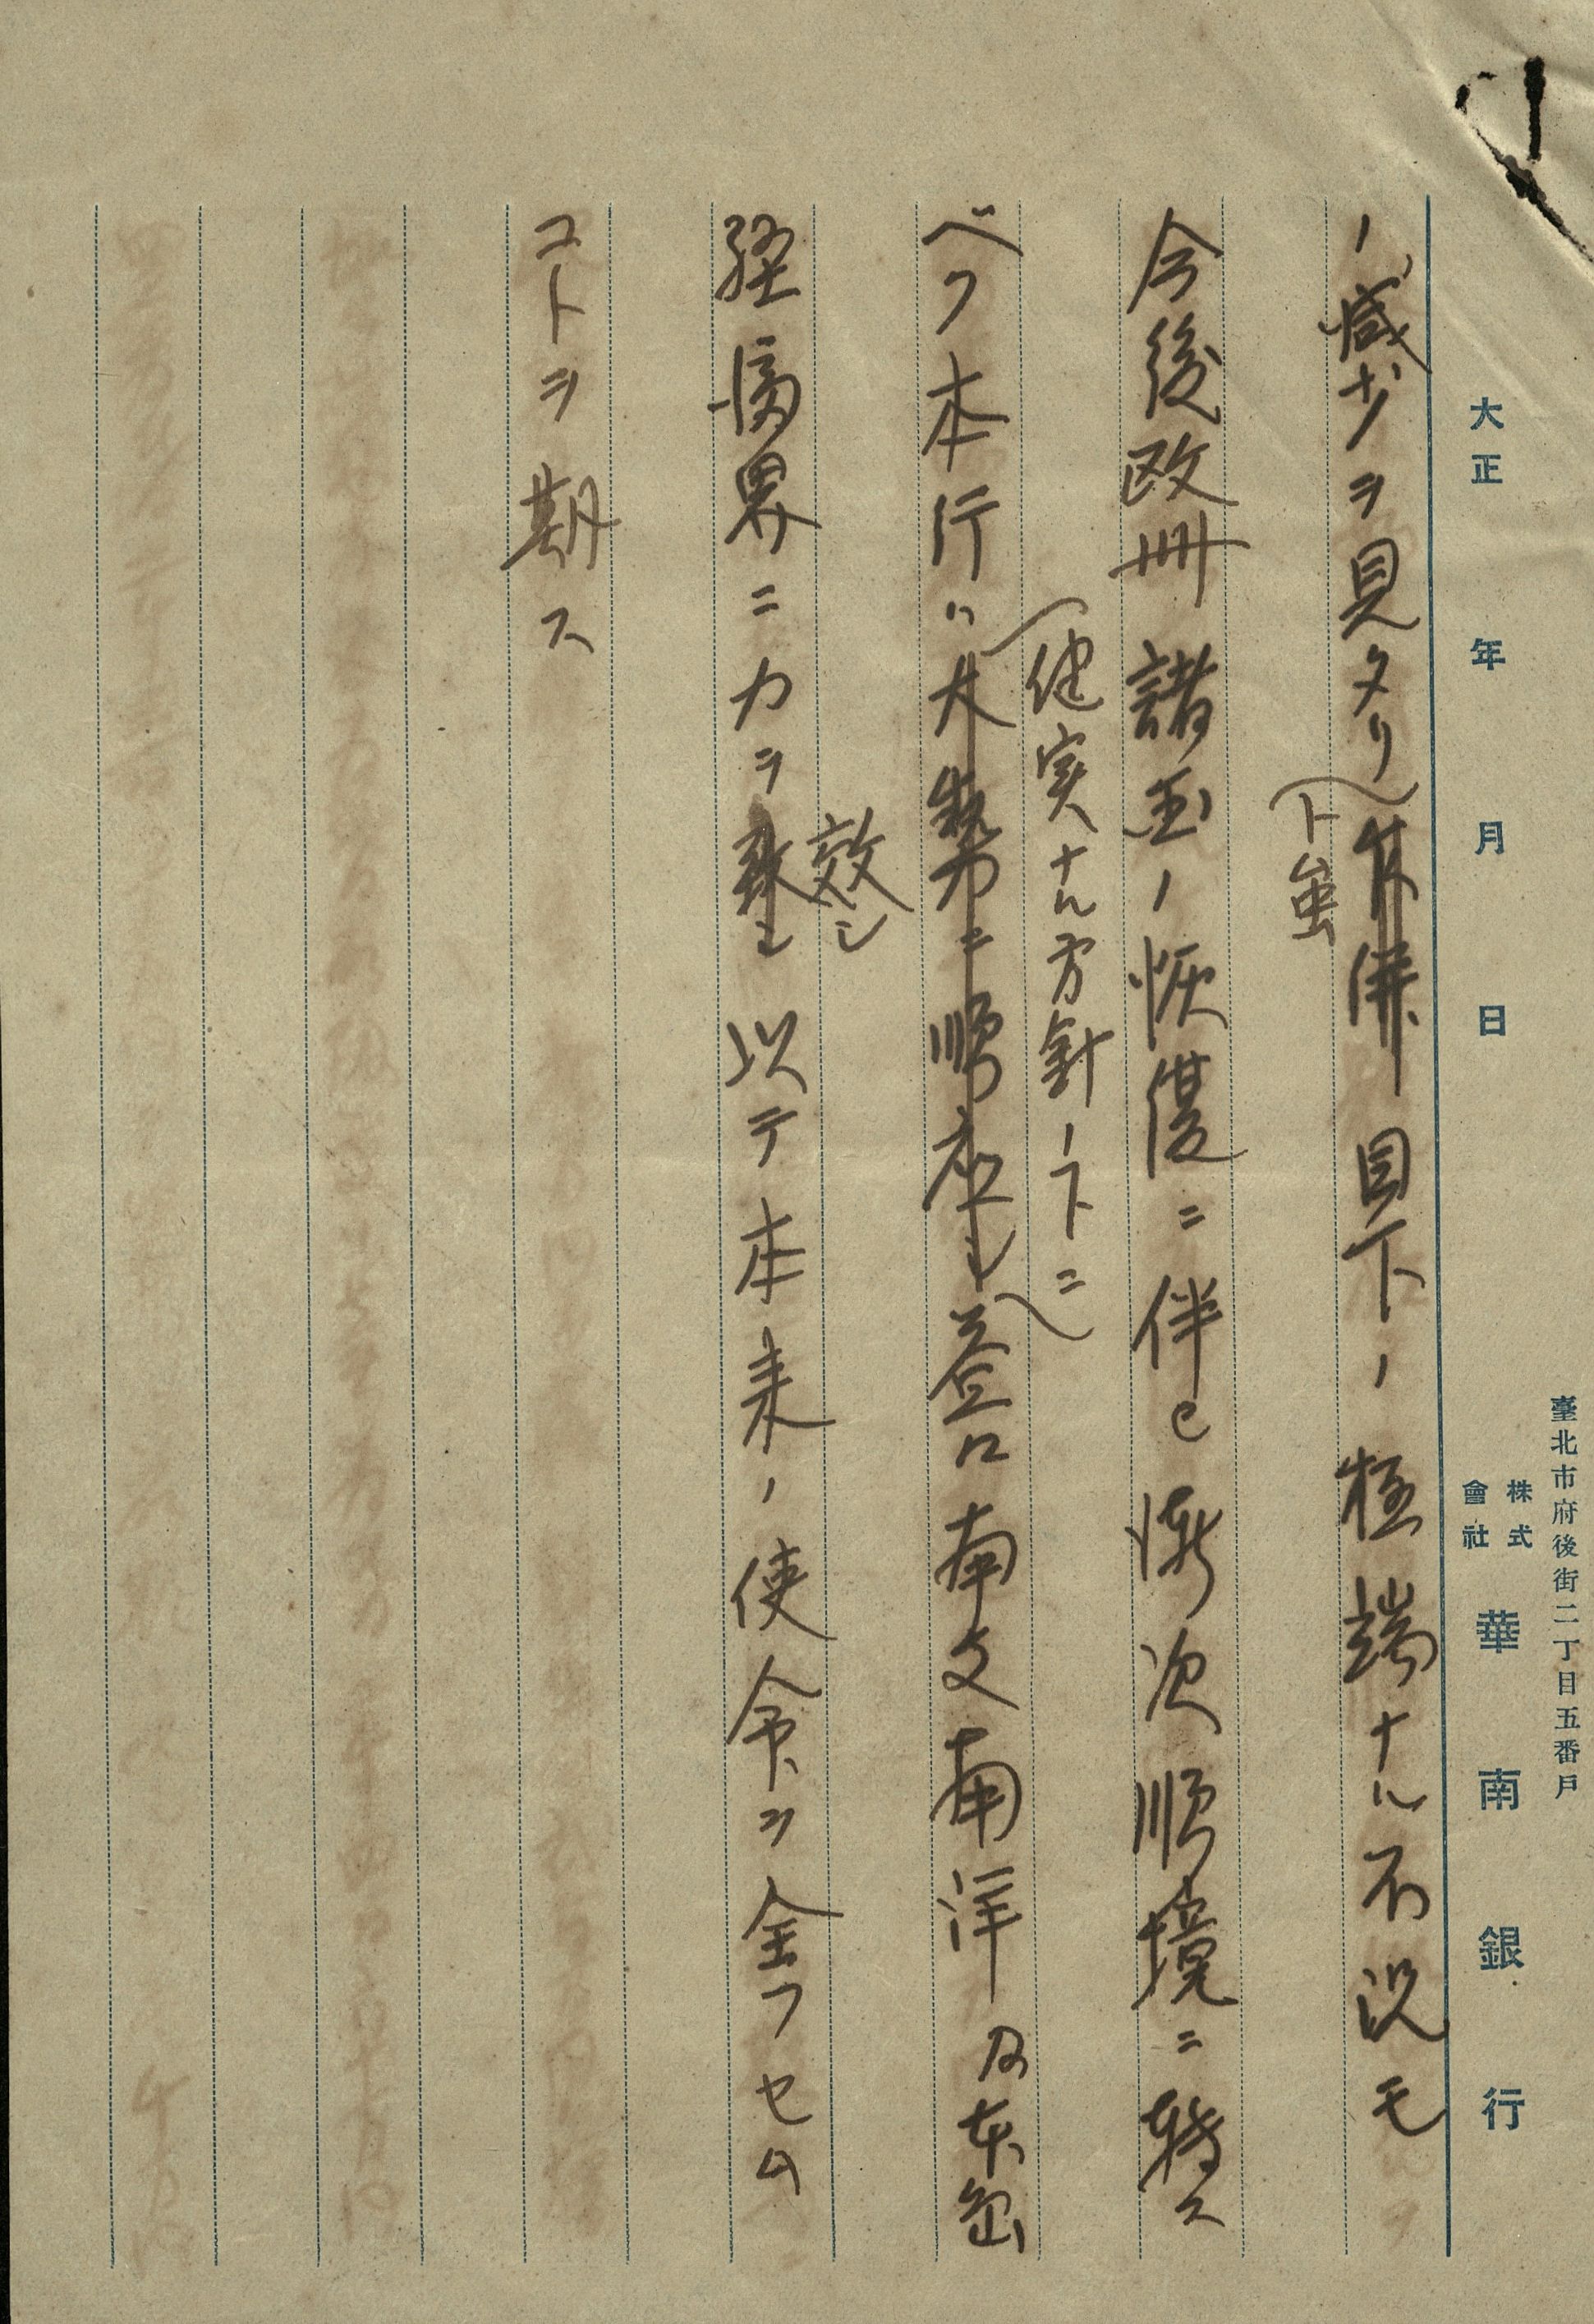 臺北市府後街二丁目五番戶
株式會社 華南銀行
大正 年 月 日
ノ減少ヲ見タリ 目下ノ極端ナル不況モ
ト雖
今後欧州諸国ノ恢復ニ伴ヒ漸次順境ニ轉ス
健実ナル方針ノ下ニ
ベク本行ハ大勢ニ順応シ益々南支南洋及本島
效シ
経済界ニ力ヲ致シ以テ本来ノ使命ヲ全フセム
コトヲ期ス